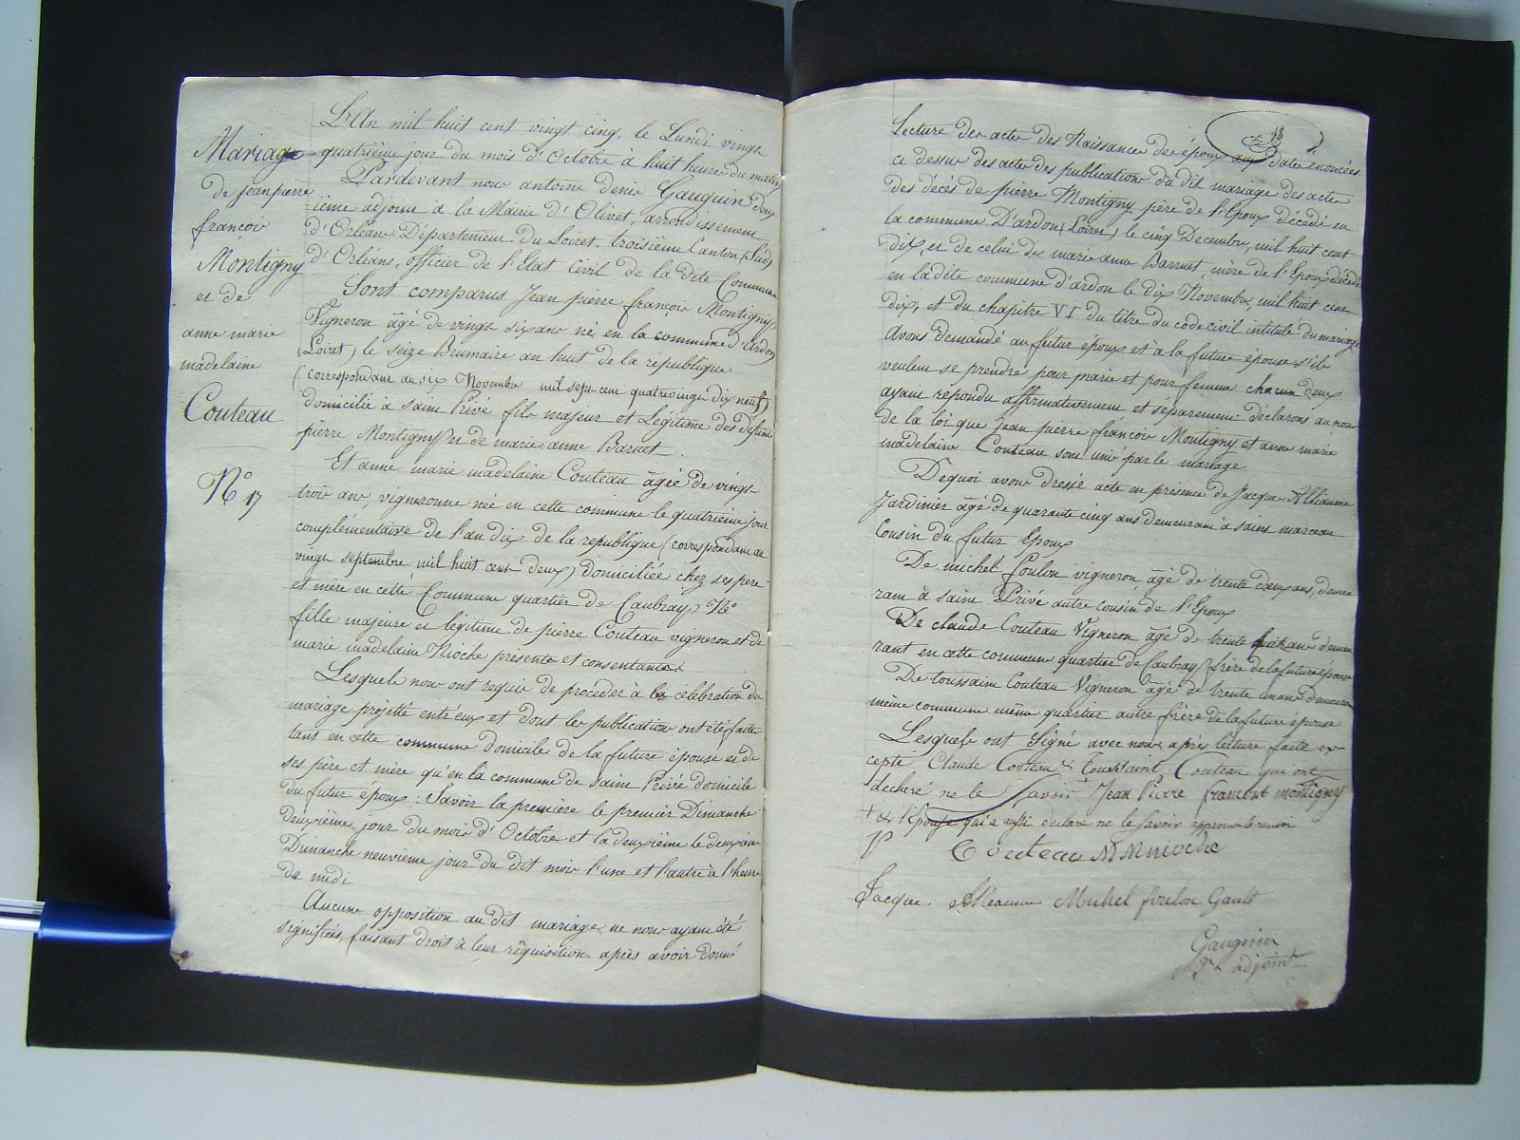 Mariage
de jean pierre
françois
Montigny
et de
anne marie
madelaine
Couteau
N° 17
L'An mil huit cent vingt cinq, le Lundi vingt
quatrième jour du mois d'Octobre à huit heures du matin
Pardevant nous antoine denis Gauguin deux
ième adjoint à la Mairie d'Olivet, arrondissement
d'Orléans Département du Loiret, troisième Canton (Sud)
d'Orléans, officier de l'Etat Civil de la dite Commune
Sont comparus Jean pierre françois Montigny
Vigneron âgé de vingt six ans né en la commune d'Ardon
(Loiret) le seize Brumaire an huit de la république
(correspondant au six Novembre mil sept cent quatrevingt dix neuf)
domicilié à saint Privé fils majeur et Légitime des défunts
pierre Montigny et de marie anne Barruet.
Et anne marie madelaine Couteau âgée de vingt
trois ans, vigneronne née en cette commune le quatrième jour
complémentaire de l'an dix de la republique (correspondant au
vingt septembre mil huit cent deux) domiciliée chez ses pere
et mère en cette Commune quartier de Caubray,
fille majeure et légitime de pierre Couteau vigneron et de
marie madelaine Nioche présents et consentants.
Lesquels nous ont requis de procéder à la célébration du
mariage projetté entr'eux et dont les publications ont été faites
tant en cette commune domicile de la future épouse et de
ses père et mère qu'en la commune de saint Privé domicile
du futur époux : Savoir la première le premier Dimanche
deuxième jour du mois d'Octobre et la deuxième le deuxième
Dimanche neuvième jour du dit mois l'une et l'autre à l'heure
de midi
Aucune opposition au dit mariage ne nous ayant été
signifiée, faisant droit à leur réquisition après avoir donné
Lecture des actes des Naissances des époux aux dates énoncées
ci dessus des actes des publications du dit mariage des actes
des décés de pierre Montigny père de l'Epoux décédé en
la commune D'ardon (Loiret) le cinq Decembre, mil huit cent
dix, et de celui de marie anne Barruet, mère de l'Epoux décédée
en la dite commune d'ardon le dix Novembre, mil huit cent
dix, et du chapitre VI du titre du code civil intitulé du mariage
avons demandé au futur époux et à la future épouse s'ils
veulent se prendre pour mari et pour femme chacun d'eux
ayant répondu affirmativement et séparement déclarons au nom
de la loi que jean pierre françois Montigny et anne marie
madelaine Couteau sont unis par le mariage
Dequoi avons dressé acte en présence de Jacque Alleaume
Jardinier âgé de quarante cinq ans demeurant à saint marceau
Cousin du futur Epoux
De michel foulon vigneron âgé de trente deux ans, demeu
rant à saint Privé autre cousin de l'Epoux
De claude Couteau Vigneron âgé de trente huit ans demeu
rant en cette commune quartier de Caubray, frère de la future épouse
De toussaint Couteau Vigneron âgé de trente un ans demeurant
même commune même quartier autre frère de la future épouse
Lesquels ont signé avec nous après lecture faite ex
cepté Claude Couteau & toussaint Couteau qui ont
declaré ne le savoir Jean Pierre franient montigny
+ & l'Epouse qui a aussi declaré ne le savoir approuvé le renvoi
Couteau M M nioche
Jacque Alleaume Michel foulon Gault
Gauguin
adjoint